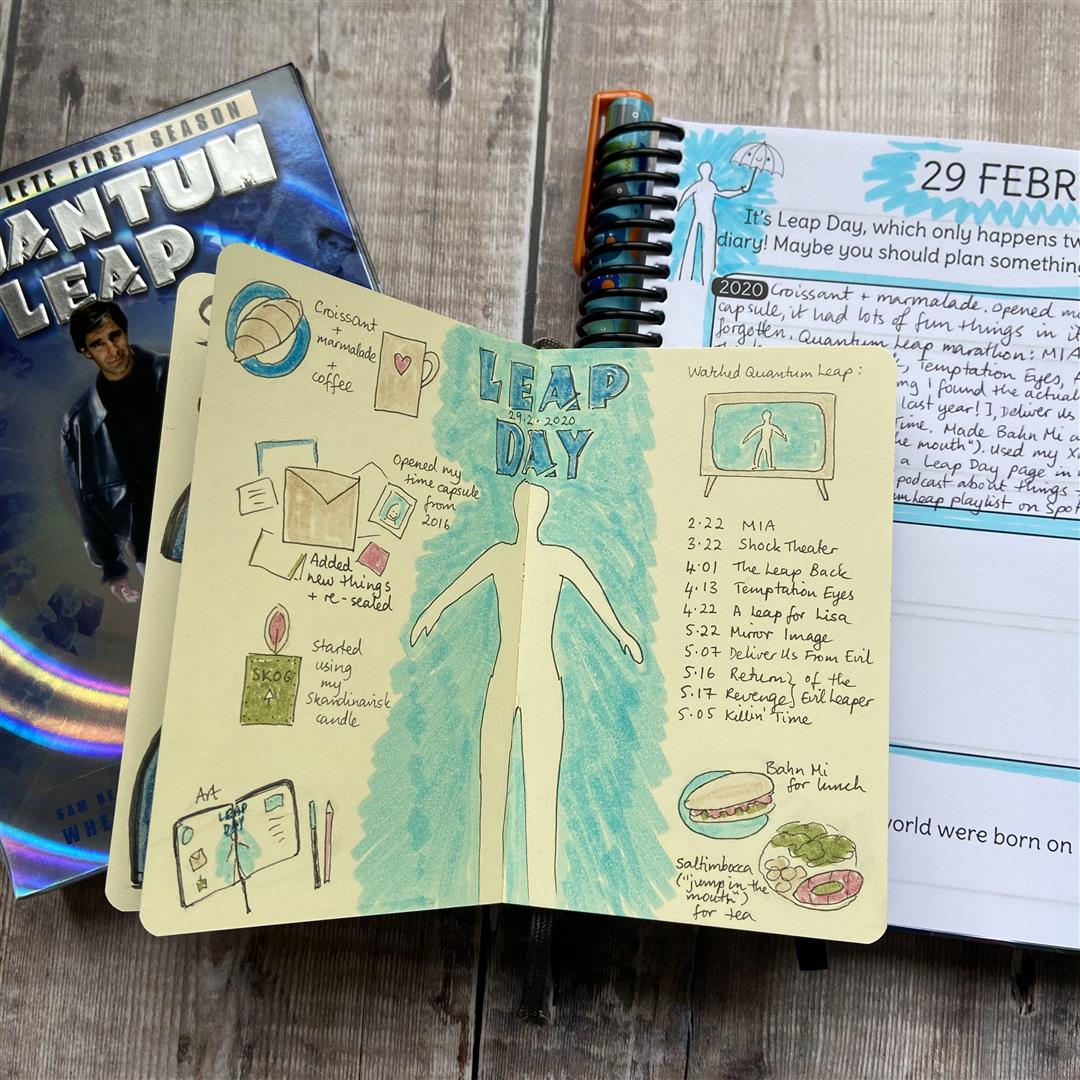 LETE FIRST SEASON
ANTUM
LEAP
SAM BE
WHE
Croissant
+
marmalade
+
coffee
Opened my
time capsule
from
2016
Added
new things
+ re-sealed
SKOG
Started
using
my
Skandinavisk
candle
Art
LEAP
DAY
LEAP
29.2.2020
DAY
Watched Quantum Leap:
2.22 MIA
3.22 Shock Theater
4.01 The Leap Back
4.13 Temptation Eyes
4.22 A Leap for Lisa
5.22 Mirror Image
5.07 Deliver Us From Evil
5.16 Return } of the
5.17 Revenge } Evil Leaper
5.05 Killin' Time
Bahn Mi
for lunch
saltimbocca
("jump in the
mouth")
for tea
29 FEBR
It's Leap Day, which only happens tw
diary! Maybe you should plan something
2020 Croissant + marmalade. Opened m
capsule, it had lots of fun things in it
forgotten. Quantum Leap marathon: MIA
Temptation Eyes, A
I found the actual
last year!], Deliver Us
Time. Made Bahn Mi a
he mouth"). Used my X
a Leap Day page in
podcast about things
um Leap playlist on Spot
world were born on